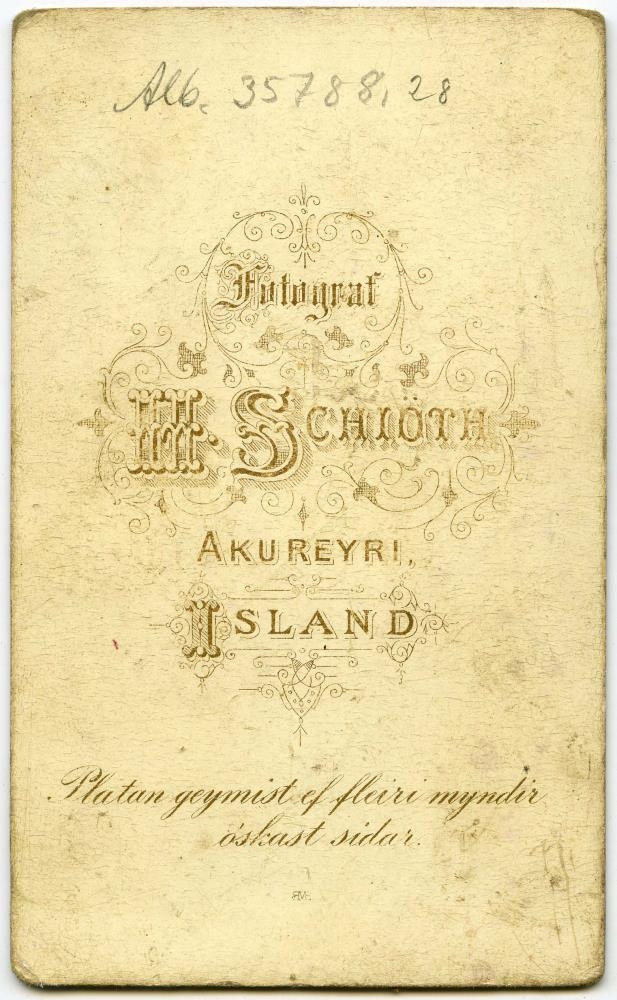 Alb. 35788, 28
Fotograf
H. Schiöth
Akureyri,
Island
Platan geymist ef fleiri myndir
óskast sidar.